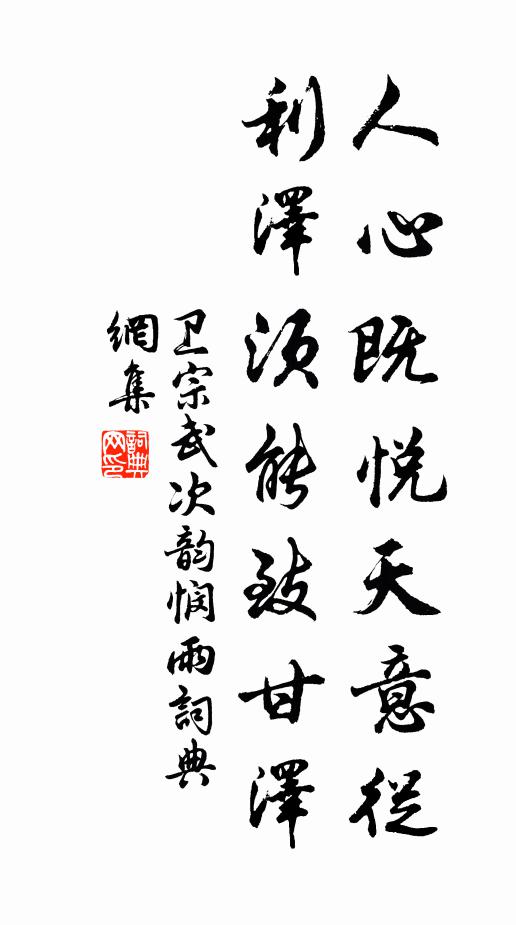 人心既悦天意從
利澤須能致甘澤
卫宗武次韵悯雨詞典
網集
詞典网印